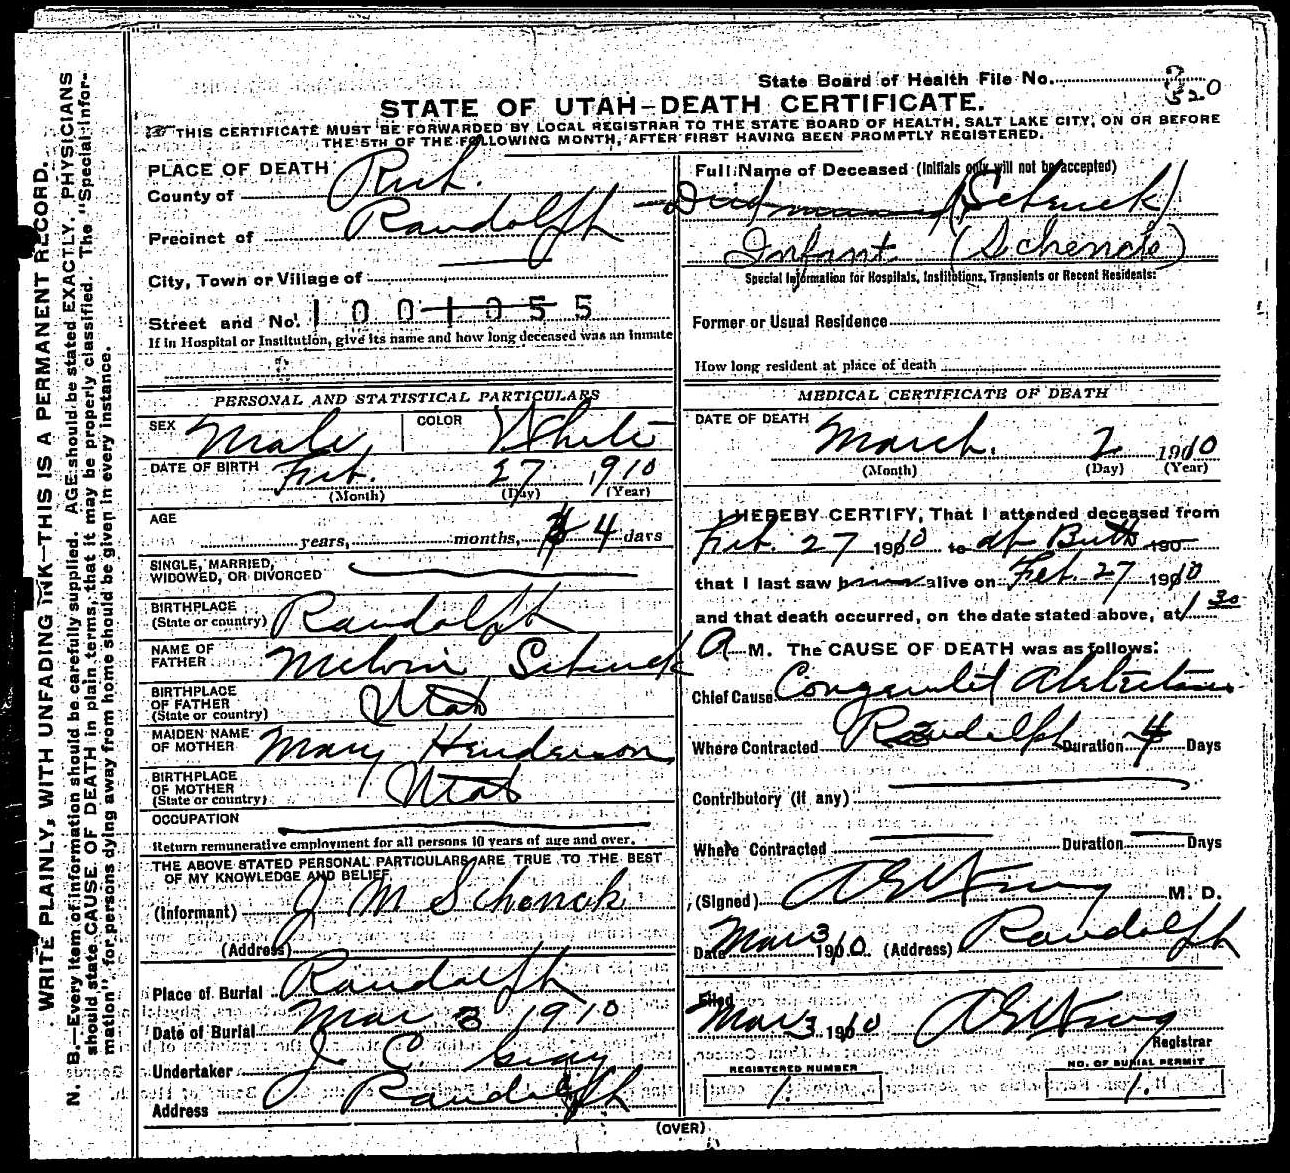 State Board of Health File No. 320
STATE OF UTAH—DEATH CERTIFICATE.
THIS CERTIFICATE MUST BE FORWARDED BY LOCAL REGISTRAR TO THE STATE BOARD OF HEALTH, SALT LAKE CITY, ON OR BEFORE
THE 5TH OF THE FOLLOWING MONTH, AFTER FIRST HAVING BEEN PROMPTLY REGISTERED.
WRITE PLAINLY, WITH UNFADING INK—THIS IS A PERMANENT RECORD.
N. B.—Every item of information should be carefully supplied. AGE should be stated EXACTLY. PHYSICIANS
should state CAUSE OF DEATH in plain terms, that it may be properly classified. The "Special Infor-
mation" for persons dying away from home should be given in every instance.
PLACE OF DEATH
County of Rich.
Precinct of Randolph
City, Town or Village of
Street and No. 1001055
If in Hospital or Institution, give its name and how long deceased was an inmate
PERSONAL AND STATISTICAL PARTICULARS
SEX Male COLOR White
DATE OF BIRTH Feb. 27 1910
(Month) (Day) (Year)
AGE
years, months, 4 days
SINGLE, MARRIED,
WIDOWED, OR DIVORCED
BIRTHPLACE
(State or country) Randolph
NAME OF
FATHER Melvin Schenck
BIRTHPLACE
OF FATHER
(State or country) Utah
MAIDEN NAME
OF MOTHER Mary Henderson
BIRTHPLACE
OF MOTHER
(State or country) Utah
OCCUPATION
Return remunerative employment for all persons 10 years of age and over.
THE ABOVE STATED PERSONAL PARTICULARS ARE TRUE TO THE BEST
OF MY KNOWLEDGE AND BELIEF
(Informant) J M Schenck
(Address)
Place of Burial Randolph
Date of Burial Mar 3 1910
Undertaker J. C. Gray
Address Randolph
Full Name of Deceased (Initials only will not be accepted)
(Schenck)
Infant (Schenck)
Special Information for Hospitals, Institutions, Transients or Recent Residents:
Former or Usual Residence
How long resident at place of death
MEDICAL CERTIFICATE OF DEATH
DATE OF DEATH March. 2 1910
(Month) (Day) (Year)
I HEREBY CERTIFY, That I attended deceased from
Feb. 27 1910 to at Birth 190
that I last saw him alive on Feb. 27 1910
and that death occurred, on the date stated above, at 1 30
A M. The CAUSE OF DEATH was as follows:
Chief Cause
Where Contracted Randolph Duration 4 Days
Contributory (if any)
Where Contracted Duration Days
(Signed) M. D.
Date Mar 3 1910 (Address) Randolph
Filed
Mar 3 1910
Registrar
REGISTERED NUMBER
1.
NO. OF BURIAL PERMIT
1.
(OVER)